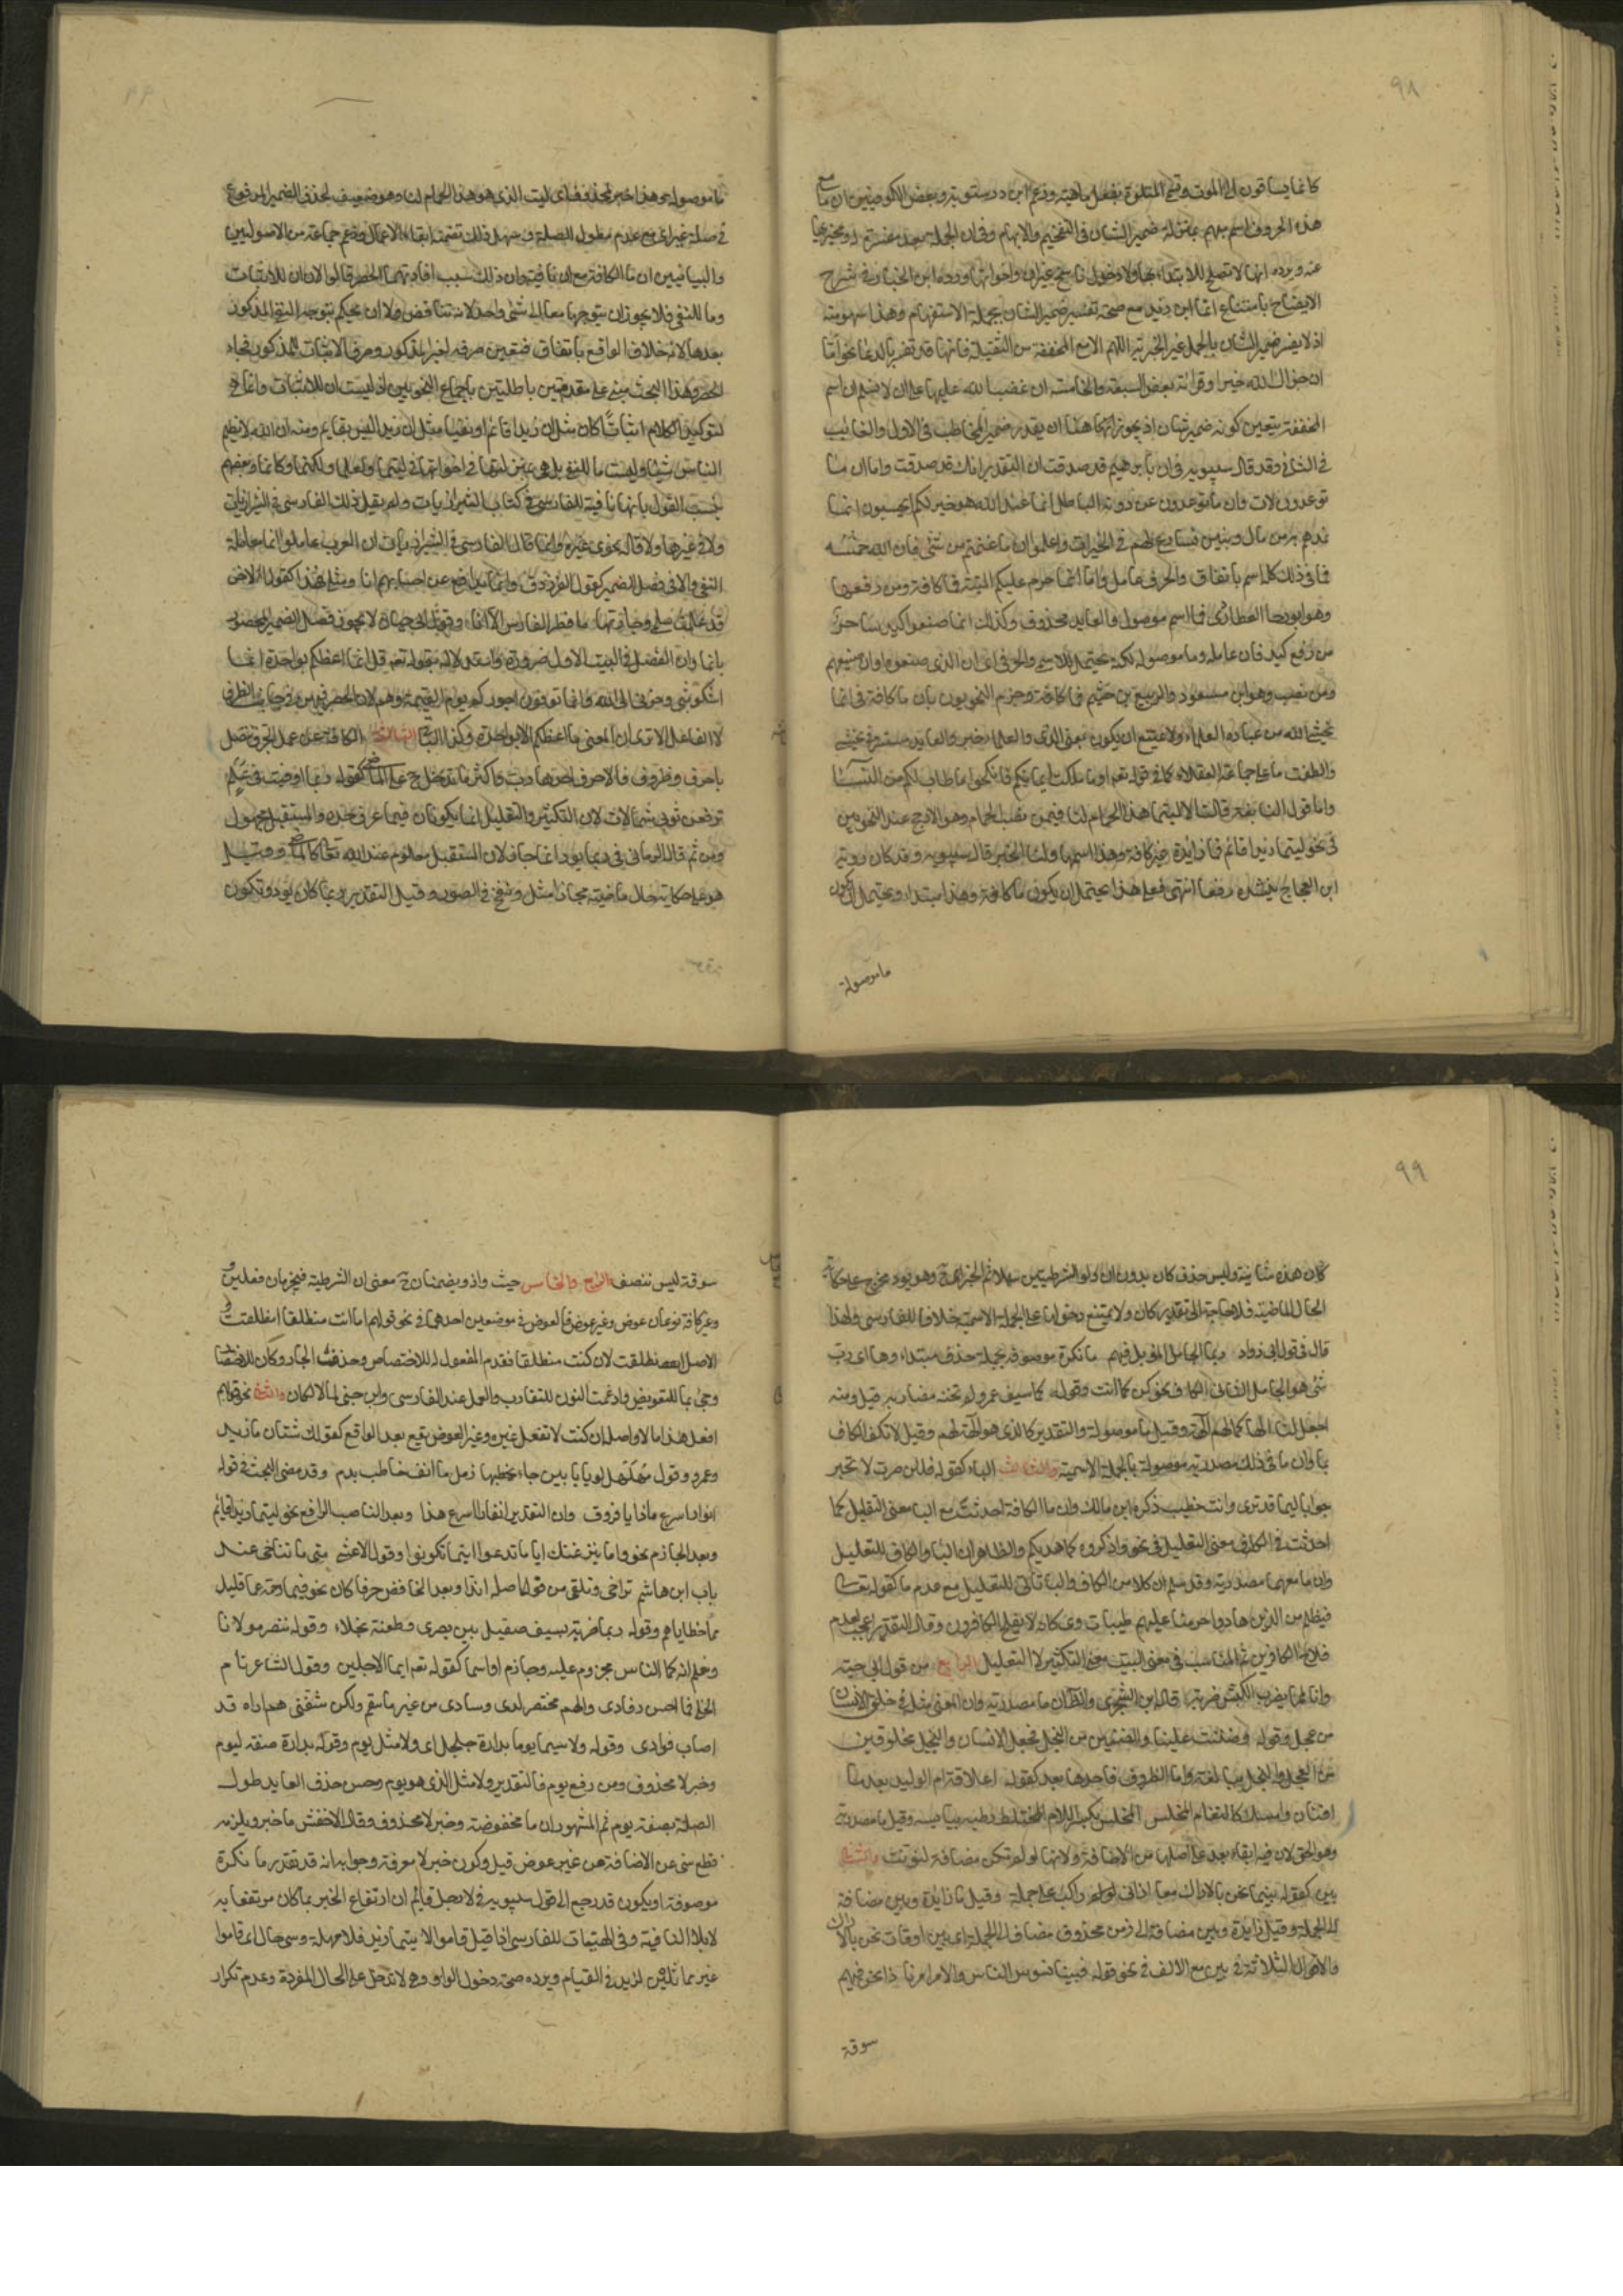 ٩٨
كانما يساقون الى الموت وقبح المتلوة بفعل ماهية وزعم ابن درستويه وبعض الكوفيين ان ما مع
هذه الحروف اسم مبهم بمنزلة ضمير الشان في التفخيم والابهام وفي ان الجملة بعده مفسرة له ومخبر بها
عنه ويرده انها لا تصلح للابتداء بها ولا دخول ناسخ غير ان واخواتها ورده ابن الخباز في شرح
الايضاح بامتناع انما اين زيد مع صحة تفسير ضمير الشان بجملة الاستفهام وهذا سهو منه
اذ لا يفسر ضمير الشان بالجمل غير الخبرية اللهم الا مع المخففة من الثقيلة فانها قد تفسر بالدعا نحو اما
ان جزاك الله خيرا وقرائة بعض السبعة والخامسة ان غضب الله عليها على ان لا نسلم ان اسم
المخففة يتعين كونه ضمير شان اذ يجوز هنا ان يقدر ضمير المخاطب في الاول والغايب
في الثاني وقد قال سيبويه في ان يا ابرهيم قد صدقت ان التقدير انك قد صدقت واما ان ما
توعدون لات وان ما يدعون من دونه الباطل انما عند الله هو خير لكم ايحسبون انما
نمدهم به من مال وبنين نسارع لهم في الخيرات واعلموا ان ما غنمتم من شئ فان لله خمسه
فما في ذلك كله اسم باتفاق والحرف عامل واما انما حرم عليكم الميتة فما كافة ومن رفعها
وهو ابو رجا العطاردى فما اسم موصول والعايد محذوف وكذلك انما صنعوا كيد ساحر
من رفع كيد فان عامله وما موصولة لكنه محتمل للاسمي والحرفي اى ان الذى صنعوه او ان صنعهم
ومن نصب وهو ابن مسعود والربيع بن خثيم فما كافة وجزم النحويون بان ما كافة في انما
يخشى الله من عباده العلماء ولا يمتنع ان يكون بمعنى الذى والعلما خبر والعايد مستتر في يخشى
واطلقت ما على جماعة العقلاء كما في قوله تعم او ما ملكت ايمانكم فانكحوا ما طاب لكم من النسا
واما قول النابغة قالت الا ليتما هذا الحمام لنا فيمن نصب الحمام وهو الارجح عند النحويين
في نحو ليتما زيدا قائم فما زايدة غير كافة وهذا اسمها ولنا الخبر قال سيبويه وقد كان روبة
ابن العجاج ينشده رفعا انتهى فعلى هذا يحتمل ان يكون ما كافة وهذا مبتدا ويحتمل ان يكون
ما موصولة
ما موصولة وهذا خبر لمحذوف اى ليت الذى هو هذا الحمام لنا وهو ضعيف لحذف الضمير المرفوع
في صلة غير اى مع عدم طول الصلة وسهل ذلك تضمنه ابقاء الاعمال وزعم جماعة من الاصوليين
والبيانيين ان ما الكافة مع ان نافية وان ذلك سبب افادتها الحصر قالوا لان ان للاثبات
وما للنفي فلا يجوز ان يتوجها معا الى شئ واحد لانه تناقض ولا ان يحكم بتوجه النفي للمذكور
بعدها لانه خلاف الواقع باتفاق فتعين صرفه لغير المذكور وصرف الاثبات للمذكور فجاء
الحصر وهذا البحث مبني على مقدمتين باطلتين باجماع النحويين اذ ليست ان للاثبات وانما هي
لتوكيد الكلام اثباتا كان مثل ان زيدا قائم او نفيا مثل ان زيدا ليس بقايم ومنه ان الله لا يظلم
الناس شيئا وليست ما للنفي بل هي بمنزلتها في اخواتها في ليتما ولعلما ولكنما وكانما وبعضهم
ينسب القول بانها نافية للفارسي في كتاب الشيرازيات ولم يقل ذلك الفارسي في الشيرازيات
ولا في غيرها ولا قاله نحوى غيره وانما قال الفارسي في الشيرازيات ان العرب عاملوا انما معاملة
النفي والا في فصل الضمير كقول الفرزدق وانما يدافع عن احسابهم انا ومثلي فهذا كقول الاخر
قد علمت سلمى وجاراتها ما قطر الفارس الا انا وقول ابي حيان لا يجوز فصل الضمير المحصور
بانما وان الفصل في البيت الاول ضرورة واستدلاله بقوله تعم قل انما اعظكم بواحدة انما
اشكو بثي وحزني الى الله وانما توفون اجوركم يوم القيمة وهم لان الحصر فيهن في جانب الظرف
لا الفاعل الا ترى ان المعنى ما اعظكم الا بواحدة وكذا الباقي الثالث الكافة عن عمل الجر وتتصل
باحرف وظروف فالاحرف احدها رب واكثر ما تدخل ح على الماضي كقوله ربما اوفيت في علم
ترفعن ثوبي شمالات لان التكثير والتقليل انما يكونان فيما عرف حده والمستقبل مجهول
ومن ثم قال الرماني في ربما يود انما جاز لان المستقبل معلوم عند الله تعالى كالماضي وقيل
هو على حكاية حال ماضية مجازا مثل ونفخ في الصور وقيل التقدير ربما كان يود وتكون
٩٩
كان هذه شانية وليس حذف كان بدون ان ولو الشرطيتين سهلا ثم الخبر ح وهو يود مخرج على حكاية
الحال الماضية فلا حاجة الى تقدير كان ولا يمتنع دخولها على الجملة الاسمية خلافا للفارسي ولهذا
قال في قول ابي دواد ربما الجامل المؤبل فيهم ما نكرة موصوفة بجملة حذف مبتداءها اى رب
شئ هو الجامل الثاني الكاف نحو كن كما انت وقوله كما سيف عمرو لم تخنه مضاربه قيل ومنه
اجعل لنا الها كما لهم آلهة وقيل ما موصولة والتقدير كالذى هو آلهة لهم وقيل لا تكف الكاف
بما وان ما في ذلك مصدرية موصولة بالجملة الاسمية والثالث الباء كقوله فلئن صرت لا تحير
جوابا لبما قد ترى وانت خطيب ذكره ابن مالك وان ما الكافة احدثت مع البا معنى التقليل كما
احدثت في الكاف معنى التعليل في نحو واذكروه كما هديكم والظاهر ان البا والكاف للتعليل
وان ما معهما مصدرية وقد سلم ان كلا من الكاف والبا تاتي للتعليل مع عدم ما كقوله تعالى
فبظلم من الذين هادوا حرمنا عليهم طيبات ويكانه لا يفلح الكافرون وقال التقدير اعجب لعدم
فلاح الكافرين ثم المناسب في معنى البيت معنى التكثير لا التقليل الرابع من قول ابي حية
وانا لمما يضرب الكبش ضربة قاله ابن الشجرى والظ ان ما مصدرية وان المعنى مثله في خلق الانسان
من عجل وقوله وضنت علينا والضنين من البخل فجعل الانسان والبخيل مخلوقين
من العجل والبخل مبالغة واما الظروف فاحدها بعد كقوله اعلاقة ام الوليد بعد ما
افنان راسك كالثغام المخلس المخلس بكسر اللام المختلط رطبه بيابسه وقيل ما مصدرية
وهو الحق لان فيه ابقاء بعد على اصلها من الاضافة ولانها لو لم تكن مضافة لنونت والثاني
بين كقوله بينما نحن بالاراك معا اذ اتى راكب على جمله وقيل ما زايدة وبين مضافة
الى الجملة وقيل زايدة وبين مضافة الى زمن محذوف مضاف الى الجملة اى بين اوقات نحن بالاراك
والاقوال الثلاثة في بين مع الالف في نحو قوله فبينا نسوس الناس والامر امرنا اذا نحن فيهم
سوقة
سوقة ليس ننصف الرابع والخامس حيث واذ ويضمنان ح معنى ان الشرطية فيجزمان فعلين و
وغير كافة نوعان عوض وغير عوض فالعوض في موضعين احدهما في نحو قولهم اما انت منطلقا انطلقت و
الاصل انطلقت لان كنت منطلقا فقدم المفعول له للاختصاص وحذف الجار وكان للاختصار
وجئ بما للتعويض وادغمت النون للتقارب والعمل عند الفارسي وابن جني لما لا لكان والثاني نحو قولهم
افعل هذا اما لا واصله ان كنت لا تفعل غيره وغير العوض يقع بعد الرافع كقولك شتان ما زيد
وعمرو وقول مهلهل لو بابانين جاء يخطبها زمل ما انف خاطب بدم وقد مضى البحث في قوله
انورا سرع ماذا يا فروق وان التقدير انفارا اسرع هذا وبعد الناصب الرافع نحو ليتما زيدا قائم
وبعد الجازم نحو واما ينزغنك ايا ما تدعوا اينما تكونوا وقول الاعشى متى ما تناخى عند
باب ابن هاشم تراحى وتلقى من فواضله ندا وبعد الخافض حرفا كان نحو فبما رحمة عما قليل
مما خطاياهم وقوله ربما ضربة بسيف صقيل بين بصرى وطعنة نجلاء وقوله ننصر مولانا
ونعلم انه كما الناس مجروم عليه وجارم او اسما كقوله تعم ايما الاجلين وقول الشاعر نام
الخلي فما احس رقادى والهم محتضر لدى وسادى من غير ما سقم ولكن شفني هم اراه قد
اصاب فوادى وقوله ولا سيما يوما بدارة جلجل اى ولا مثل يوم وقوله بدارة صفة ليوم
وخبر لا محذوف ومن رفع يوم فالتقدير ولا مثل الذى هو يوم وحسن حذف العايد طول
الصلة بصفة يوم ثم المشهور ان ما مخفوضة وخبر لا محذوف وقال الاخفش ما خبر ويلزمه
قطع سي عن الاضافة من غير عوض قيل وكون خبر لا معرفة وجوابه انه قد تقدر ما نكرة
موصوفة او يكون قد رجع الى قول سيبويه في لا رجل قايم ان ارتفاع الخبر بما كان مرتفعا به
لا بلا النافية وفي الهيتيات للفارسي اذا قيل قاموا لا سيما زيد فلا مهملة وسي حال اى قاموا
غير مماثلين لزيد في القيام ويرده صحة دخول الواو وهي لا تدخل على الحال المفردة وعدم تكرار